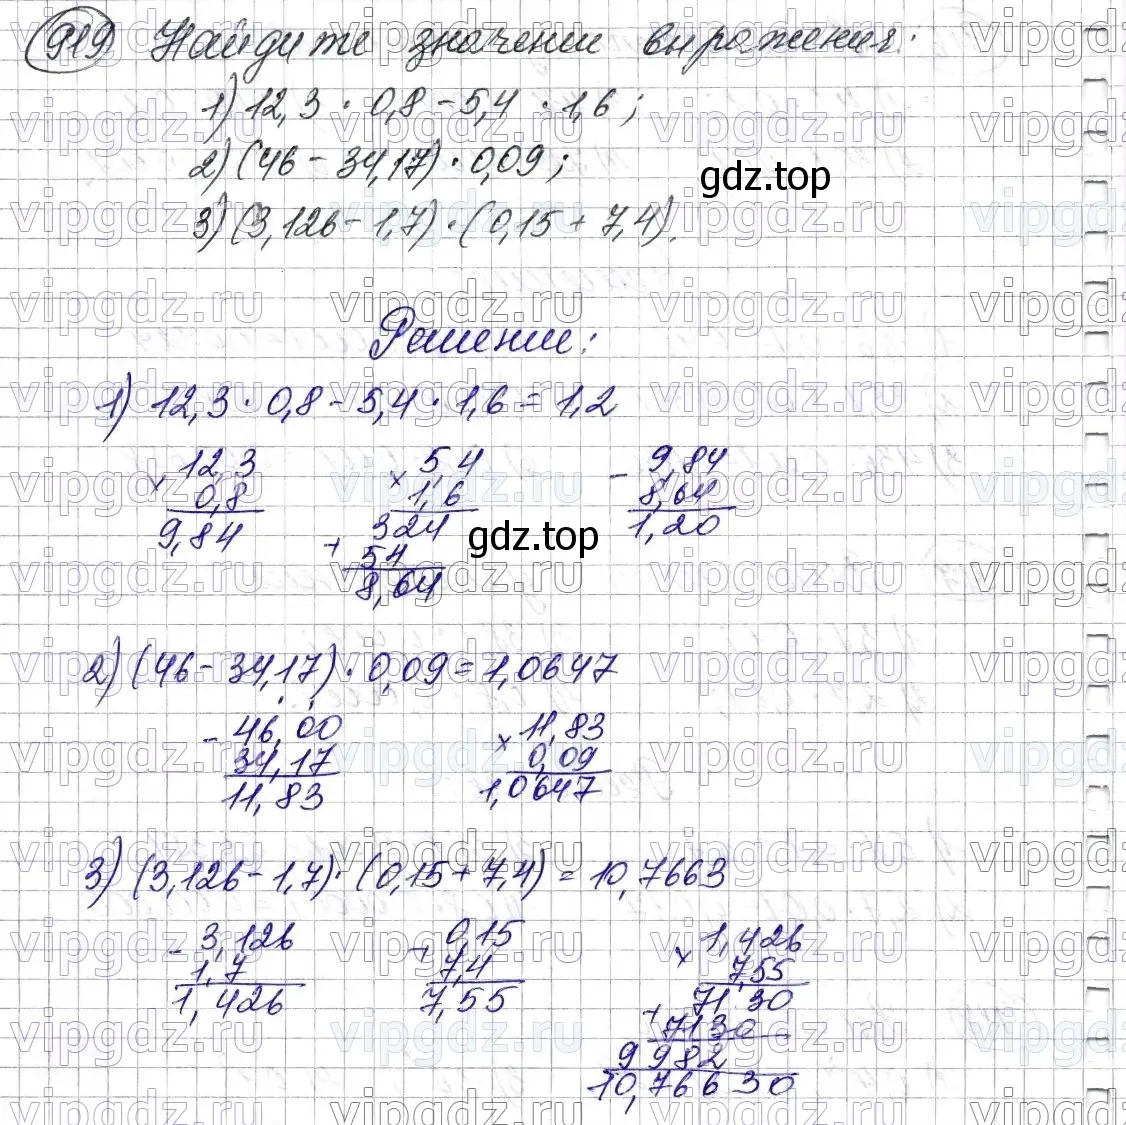 919 Найдите значение выражения:
1) 12,3 · 0,8 - 5,4 · 1,6;
2) (46 - 34,17) · 0,09;
gdz.top
3) (3,126 - 1,7) · (0,15 + 7,4).
Решение:
1) 12,3 · 0,8 - 5,4 · 1,6 = 1,2
× 12,3 × 5,4 - 9,84
0,8 1,6 8,64
9,84 324 1,20
+ 54 gdz.top
8,64
2) (46 - 34,17) · 0,09 = 1,0647
- 46,00 × 11,83
34,17 0,09
11,83 1,0647
3) (3,126 - 1,7) · (0,15 + 7,4) = 10,7663
- 3,126 + 0,15 × 1,426
1,7 7,4 7,55
1,426 7,55 7130
+ 7130
9982
10,76630
vipgdz.ru